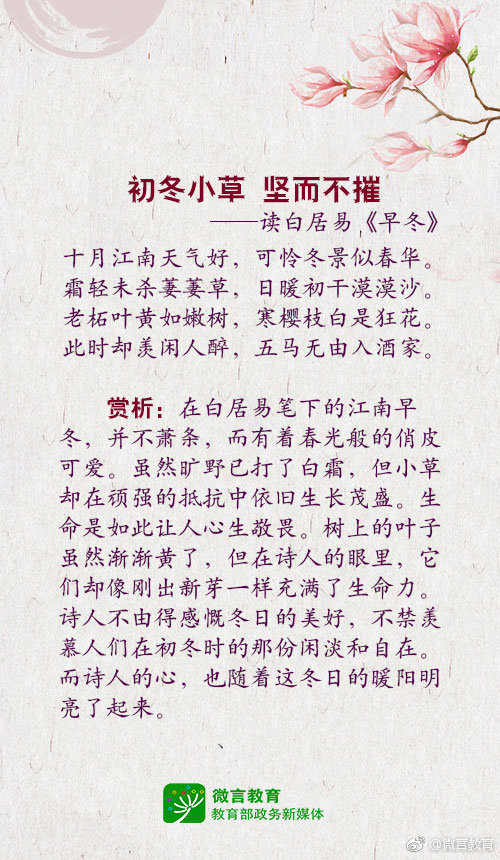 初冬小草 坚而不摧
——读白居易《早冬》
十月江南天气好，可怜冬景似春华。
霜轻未杀萋萋草，日暖初干漠漠沙。
老柘叶黄如嫩树，寒樱枝白是狂花。
此时却羡闲人醉，五马无由入酒家。
赏析：在白居易笔下的江南早
冬，并不萧条，而有着春光般的俏皮
可爱。虽然旷野已打了白霜，但小草
却在顽强的抵抗中依旧生长茂盛。生
命是如此让人心生敬畏。树上的叶子
虽然渐渐黄了，但在诗人的眼里，它
们却像刚出新芽一样充满了生命力。
诗人不由得感慨冬日的美好，不禁羡
慕人们在初冬时的那份闲淡和自在。
而诗人的心，也随着这冬日的暖阳明
亮了起来。
微言教育
教育部政务新媒体
@微言教育